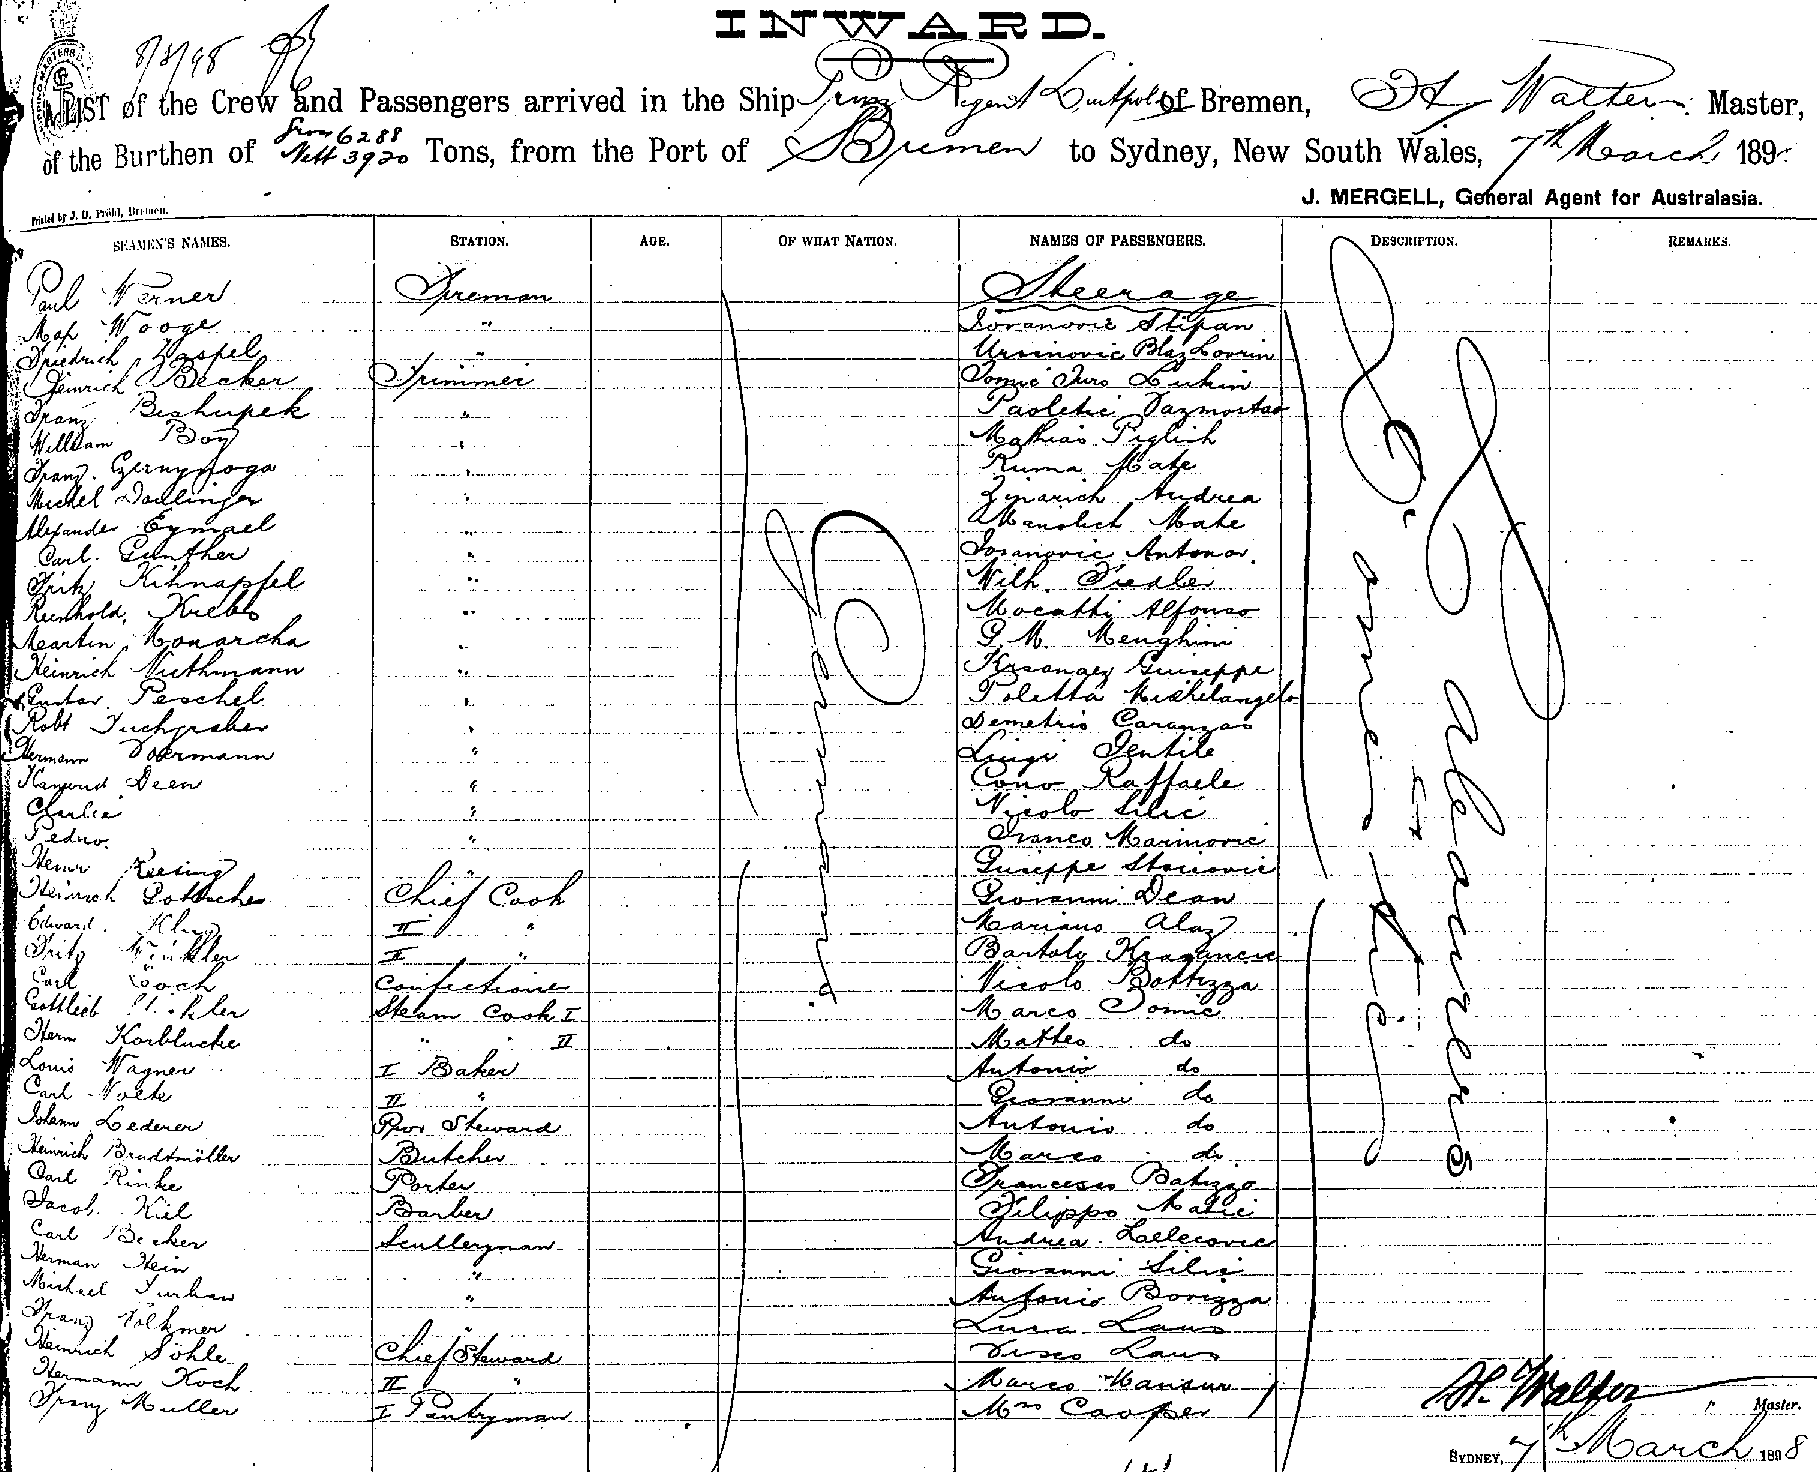 INWARD.
8/3/98
A LIST of the Crew and Passengers arrived in the Ship Prinz Regent Luitpold of Bremen, H Walter Master,
of the Burthen of Gross 6288 Nett 3920 Tons, from the Port of Bremen to Sydney, New South Wales, 7th March 189
J. MERGELL, General Agent for Australasia.
Printed by J. D. Pröhl, Bremen.
SEAMEN'S NAMES. STATION. AGE. OF WHAT NATION. NAMES OF PASSENGERS. DESCRIPTION. REMARKS.
Paul Werner Fireman Steerage
Max Wooge " Iovanovic Stipan
Friedrich Zaspel " Ursinovic Blaz Lovrin
Heinrich Becker Trimmer Tomic Juro Lukin
Franz " Paoletic
William Boy " Mathias Piglich
Franz " Ruma Mate
Michel Daulinger " Andrea
Alexander Eymael " Manolich Mate
Carl Günther " Iovanovic Antonor
Fritz Kihnapfel " Wilh. Fiedler
Reinhold Krebs " Mocatti Alfonso
Martin Monarcha " G. M. Menghini
Heinrich Nuthmann " Giuseppe
Gustav Peschel " Poletta Michelangelo
Robt Tuchgraber " Demetrio
Hermann Doermann " Luigi Gentile
Deen " Cono Raffaele
Charlie " Nicolo Silic
Pedro. " Franco Marinovic
Henr Keesing " Giuseppe
Heinrich Gottsche Chief Cook Giovanni Dean
Edward II " Mariano Alaz
Fritz Winkler II " Bartolo
Carl Koch Confectioner Nicolo Bottizza
Gottlieb Steam Cook I Marco Tomic
Herm Korblücke " " II Matteo do
Louis Wagner I Baker Antonio do
Carl Nolte II " Giovanni do
Johann Lederer Steward Antonio do
Heinrich Bradtmöller Butcher Marco do
Carl Rinke Porter Francesco Batizzo
Jacob Kiel Barber Filippo Matic
Carl Becker Sculleryman Andrea
Herman Hein " Giovanni Silic
Michael " Antonio Borizza
Franz Volkmer " Luca Laus
Heinrich Söhle Chief Steward Laus
Hermann Koch II " Marco Mansur
Franz Muller I Pantryman Mrs Cooper
Germany
H. Walter Master.
SYDNEY, 7th March 1898